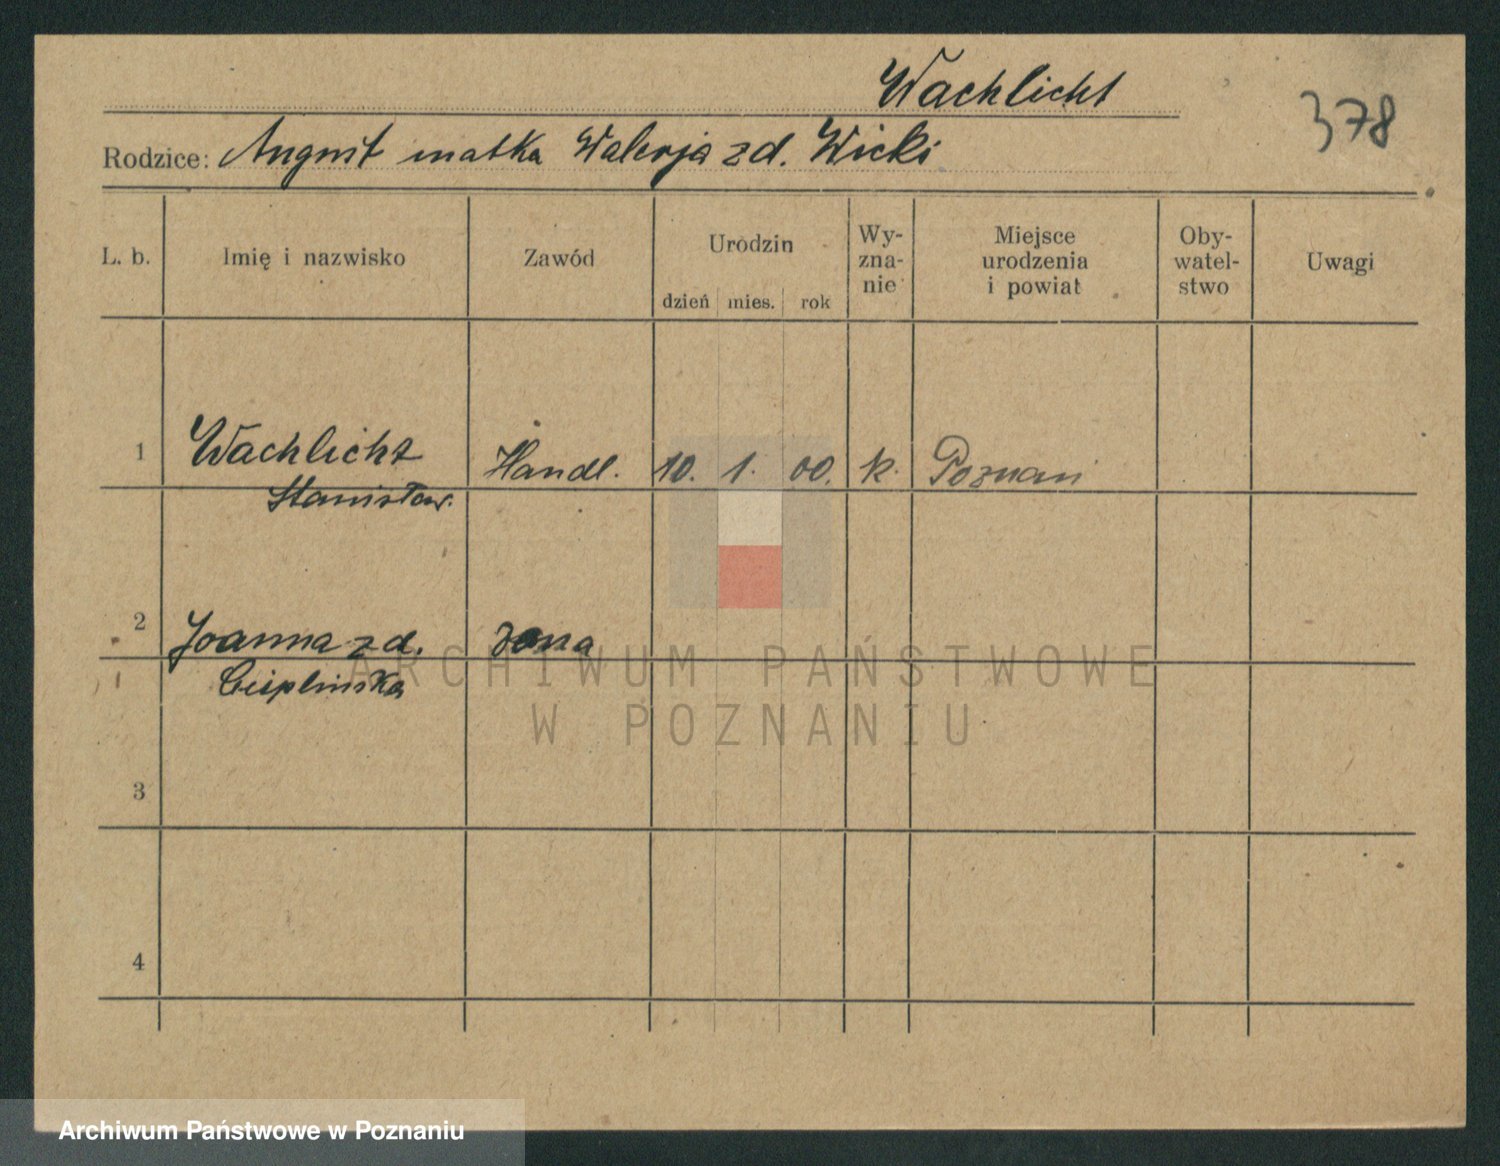 Wachlicht
378
Rodzice: August matka Walerja zd. Wicki
L. b. Imię i nazwisko Zawód Urodzin Wy-zna-nie Miejsce urodzenia i powiat Oby-watel-stwo Uwagi
dzień mies. rok
1 Wachlicht Handl. 10. 1. 00. k. Poznań
Stanisław.
2 Joanna zd. żona
Cieplińska
3
4
ARCHIWUM PAŃSTWOWE
W POZNANIU
Archiwum Państwowe w Poznaniu